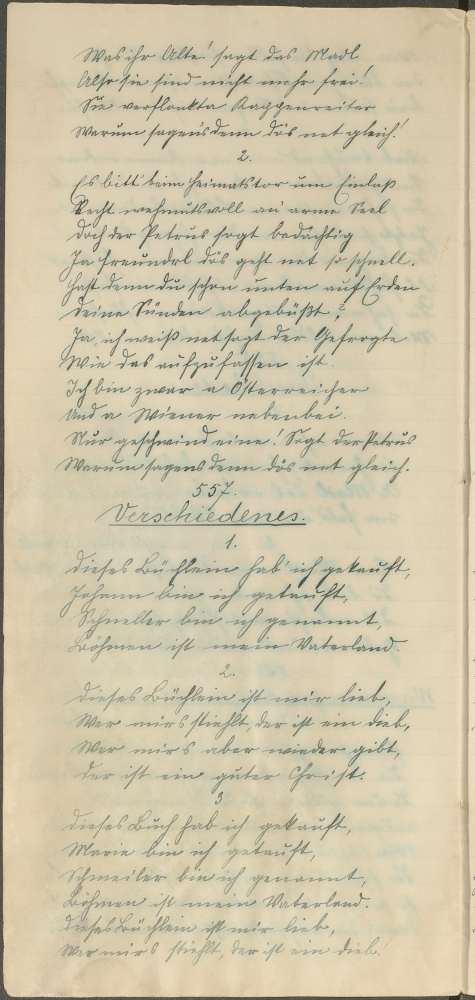 Was ihr Alte! sagt das Madl
Also sie sind nicht mehr frei!
Sie verflankta Kaggenreiter
Warum sagen's denn dös net gleich!
2.
Es bitt beim Heimatstor um Einlaß
Recht wehmutsvoll an arme Seel
doch der Petrus sagt bedächtig
Ja Freunderl dös geht net so schnell.
Hast denn du schon unten auf Erden
deine Sünden abgebüßt?
Ja, ich weiß net sagt der Gefrogte
Wie das aufzufassen ist.
Ich bin zwar a Österreicher
Und a Wiener nebenbei.
Nur geschwind eine! Sagt der Petrus
Warum sagens denn dös net gleich.
557.
Verschiedenes.
1.
dieses Büchlein hab' ich gekauft,
Johann bin ich getauft,
Schneller bin ich genannt,
Böhmen ist mein Vaterland.
2.
dieses Büchlein ist mir lieb,
Wer mirs stiehlt, der ist ein dieb,
Wer mir's aber wieder gibt,
der ist ein guter Christ.
3
dieses Buch hab ich gekauft,
Marie bin ich getauft,
Schmeiler bin ich genannt,
Böhmen ist mein Vaterland.
dieses Büchlein ist mir lieb,
Wer mirs stiehlt, der ist ein dieb!